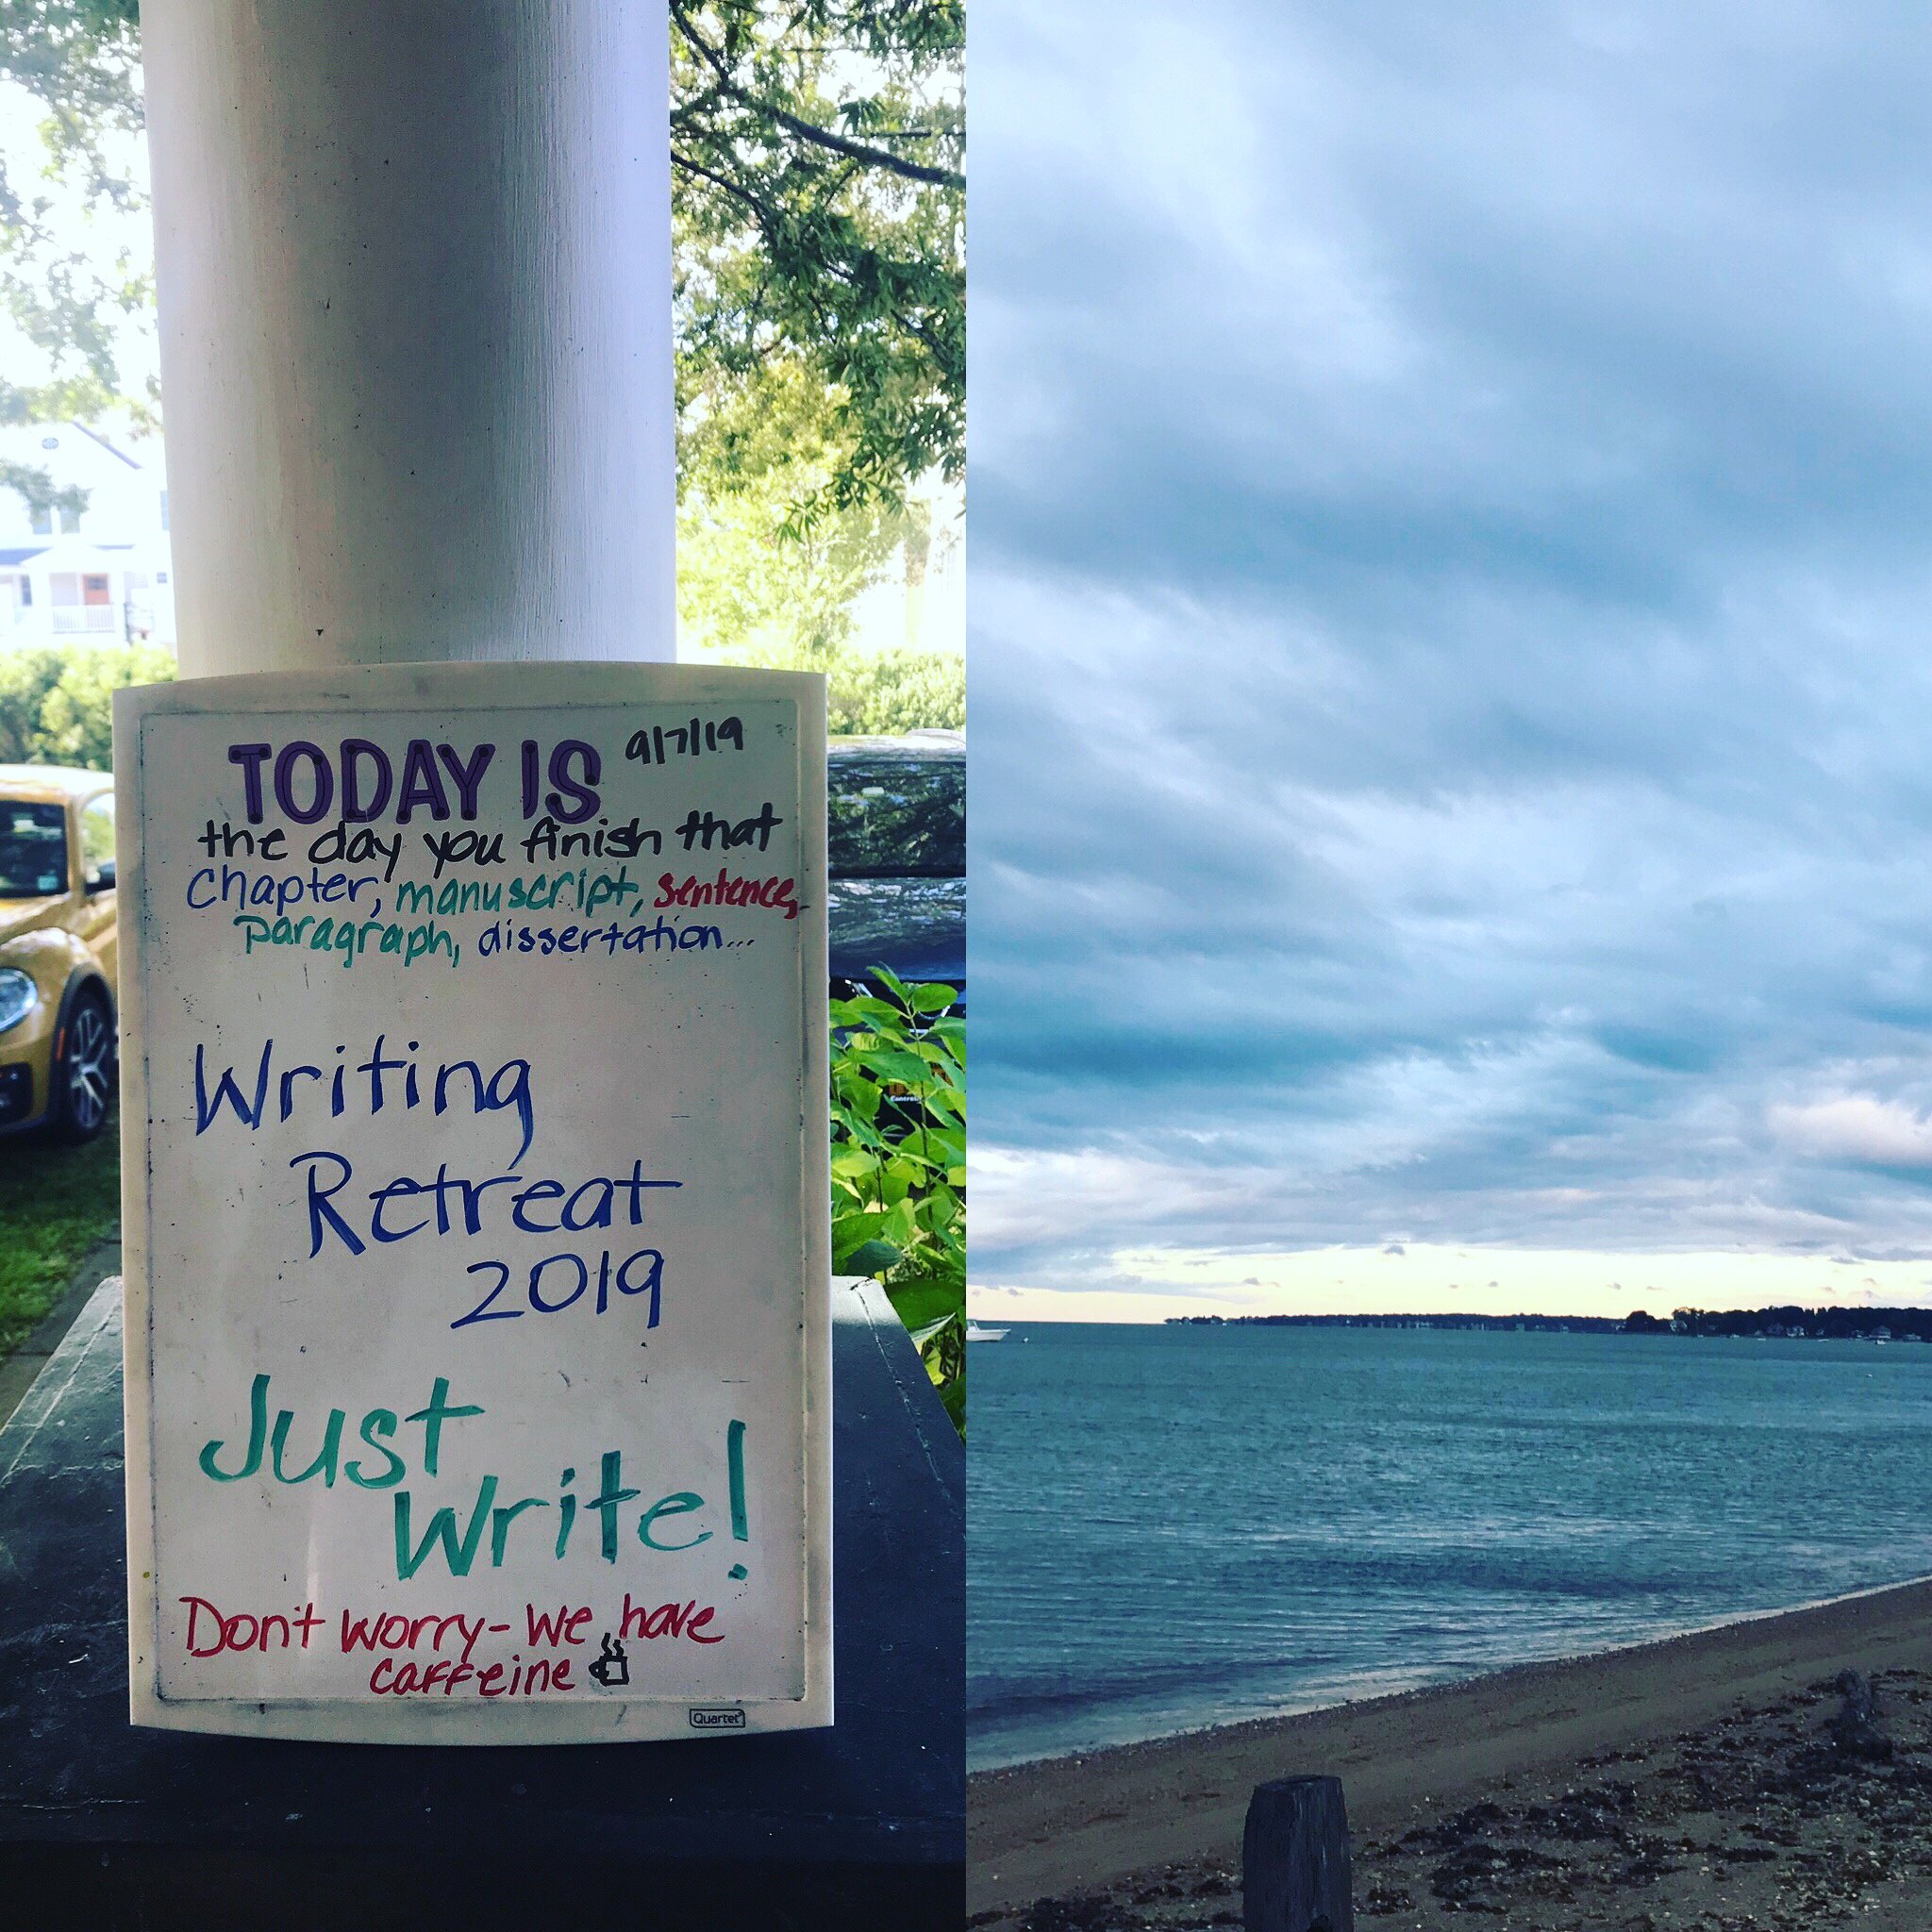 TODAY IS 9/7/19
the day you finish that
Chapter, manuscript, sentence,
paragraph, dissertation...
Writing
Retreat
2019
Just
Write!
Don't worry - we have
caffeine
Quartet